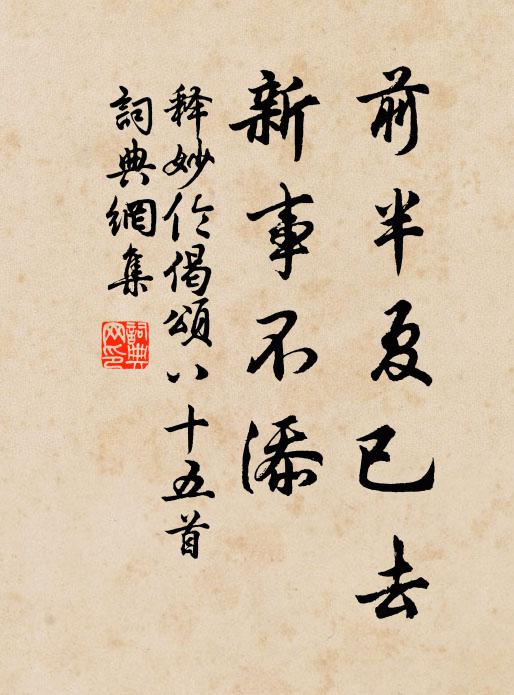 前半夏已去
新事不添
释妙伦偈颂八十五首
詞典網集
詞典網印